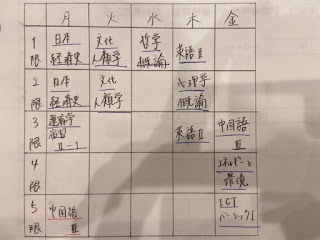 月 火 水 木 金
1限 日本経済史 文化人類学 哲学概論 英語Ⅱ
2限 日本経済史 文化人類学 心理学概論
3限 運動学演習Ⅱ-Ⅰ 英語Ⅱ 中国語Ⅲ
4限 エネルギーと環境
5限 中国語Ⅲ ベーシック